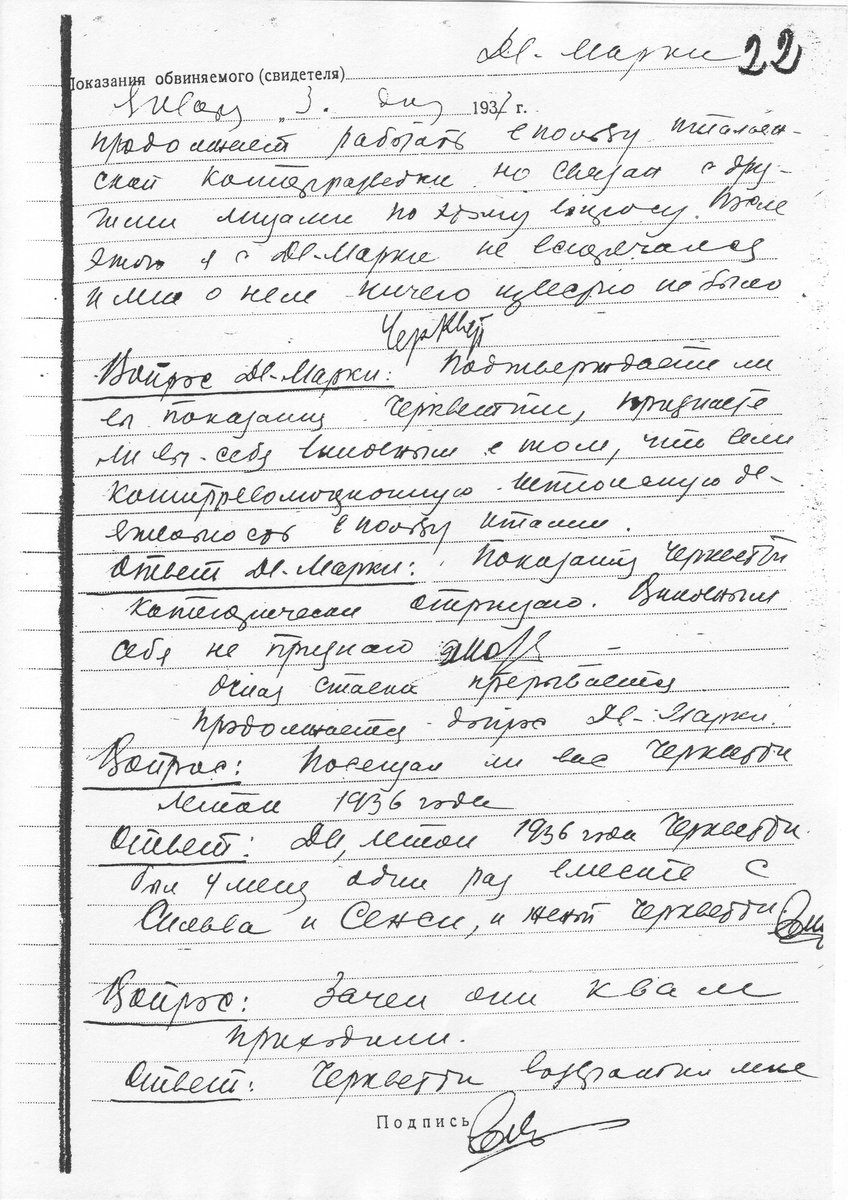 Де-Марки 22
Показания обвиняемого (свидетеля)
Января „3. дня 1937 г.
продолжает работать в пользу итальян-
ской контрразведки но связан с дру-
гими лицами по этому вопросу. После
этого я с Де-Марки не встречался
и мне о нем ничего известно не было.
Вопрос Де-Марки: Подтверждаете ли
вы показания Черкветти, признаете
ли вы себя виновным в том, что вели
контрреволюционную шпионскую де-
ятельность в пользу Италии.
Ответ Де-Марки: Показания Черкветти
категорически отрицаю. Виновным
себя не признаю
очная ставка прерывается
Продолжается допрос Де-Марки.
Вопрос: Посещал ли вас Черкветти
летом 1936 года
Ответ: Да, летом 1936 года Черкветти
был у меня один раз вместе с
Сильва и Сенси, и женой Черкветти.
Вопрос: Зачем они к вам
приходили.
Ответ: Черкветти возвратил мне
Подпись